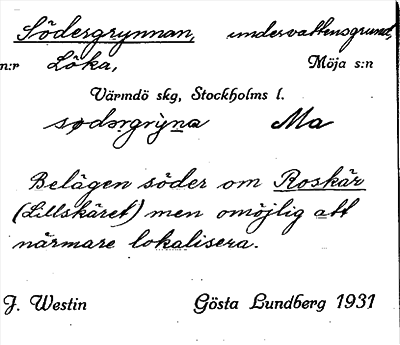 Södergrynnan, undervattensgrund,
n:r Löka, Möja s:n
Värmdö skg, Stockholms l.
sǫdərgry̨na Ma
Belägen söder om Roskär
(Lillskäret) men omöjlig att
närmare lokalisera.
J. Westin Gösta Lundberg 1931